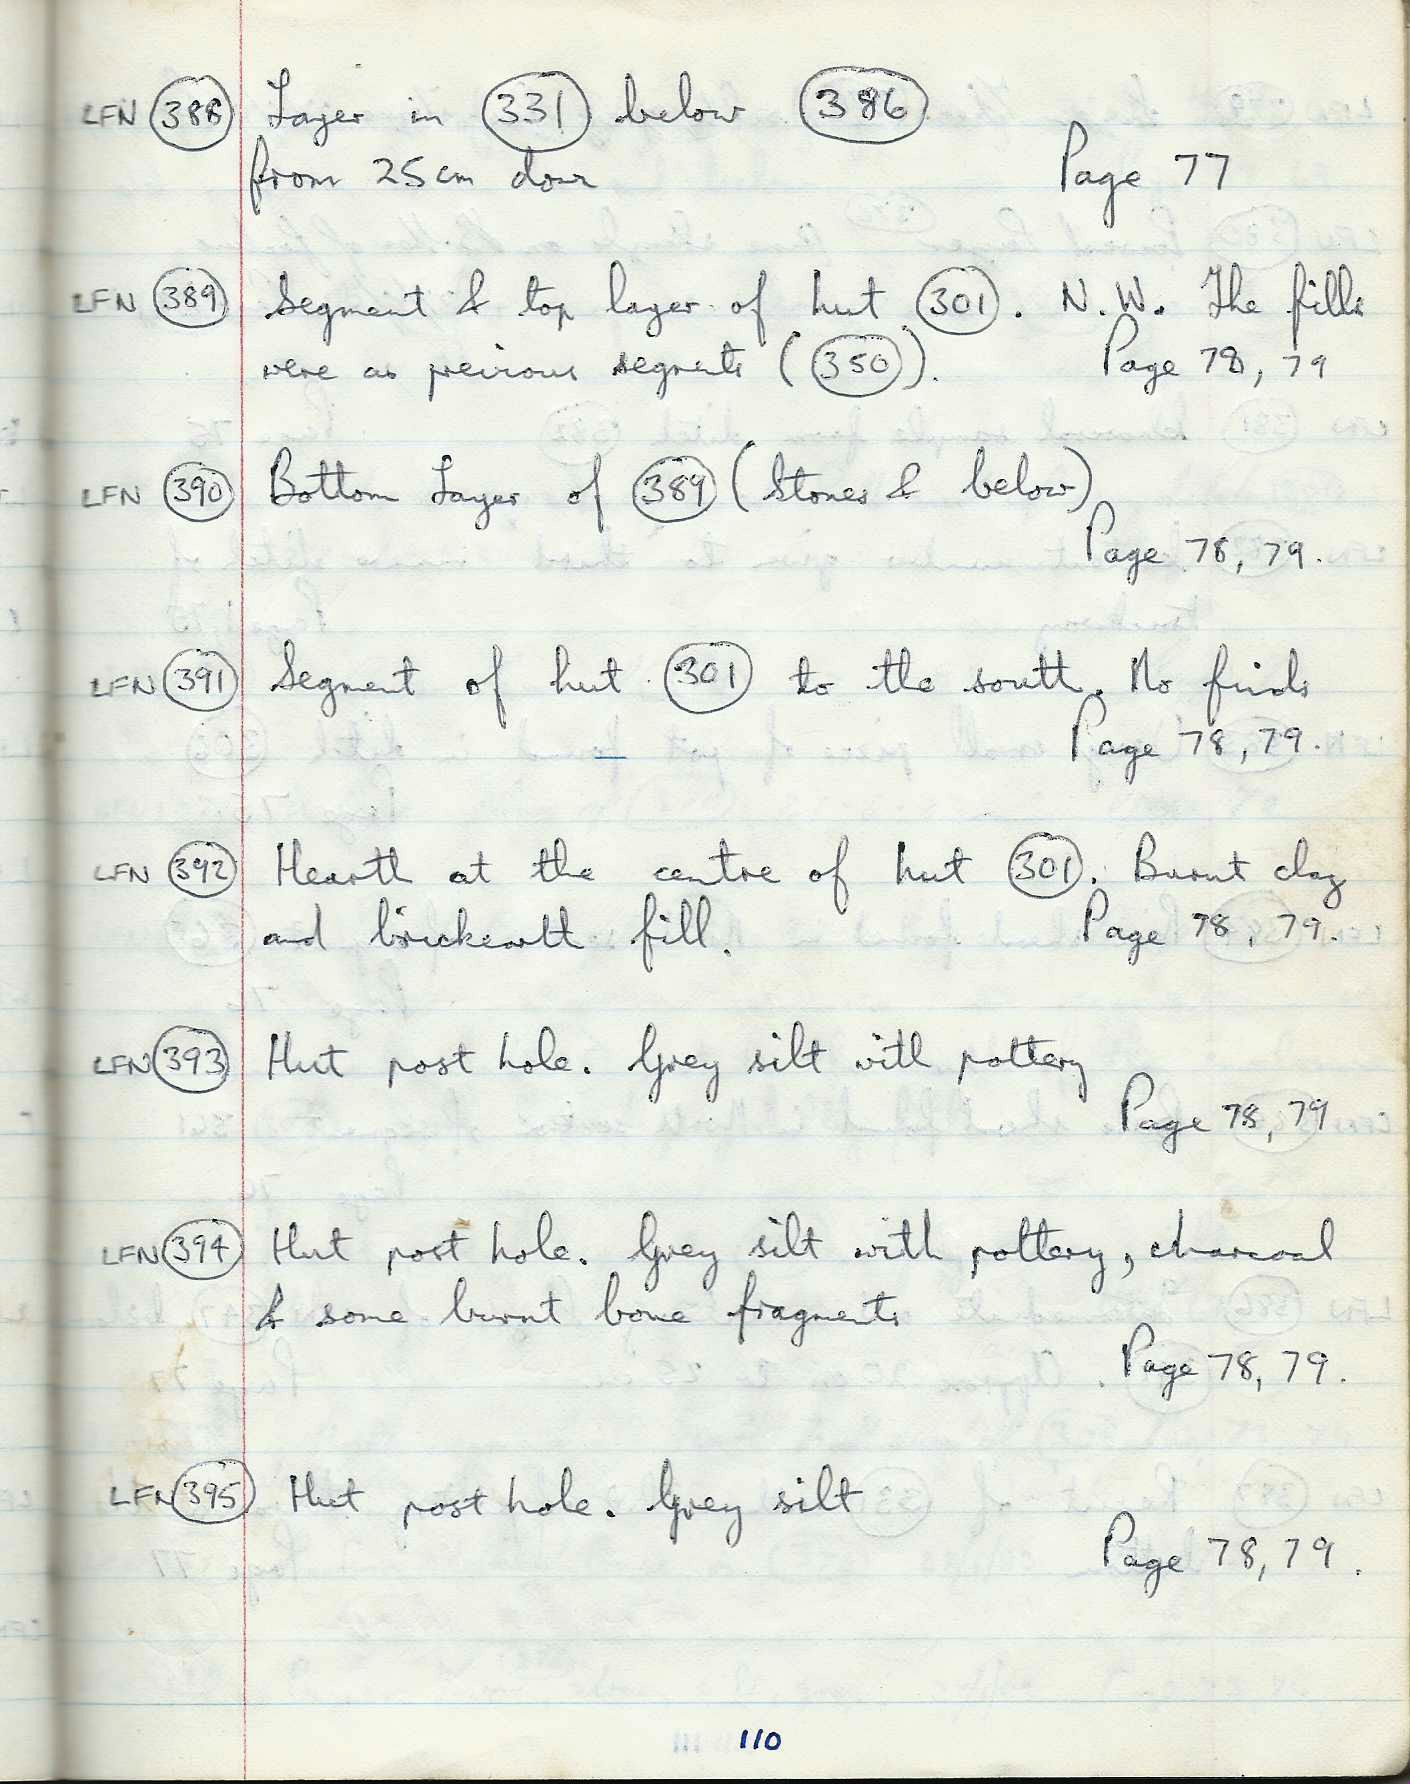 LFN 388 Layer in 331 below 386
from 25cm down
Page 77
LFN 389 Segment & top layer of hut 301. N.W. The fills
were as previous segments (350).
Page 78, 79
LFN 390 Bottom Layer of 389 (Stones & below)
Page 78, 79.
LFN 391 Segment of hut 301 to the south. No finds
Page 78, 79.
LFN 392 Hearth at the centre of hut 301. Burnt clay
and brickearth fill.
Page 78, 79.
LFN 393 Hut post hole. Grey silt with pottery
Page 78, 79
LFN 394 Hut post hole. Grey silt with pottery, charcoal
& some burnt bone fragments
Page 78, 79.
LFN 395 Hut post hole. Grey silt
Page 78, 79.
110